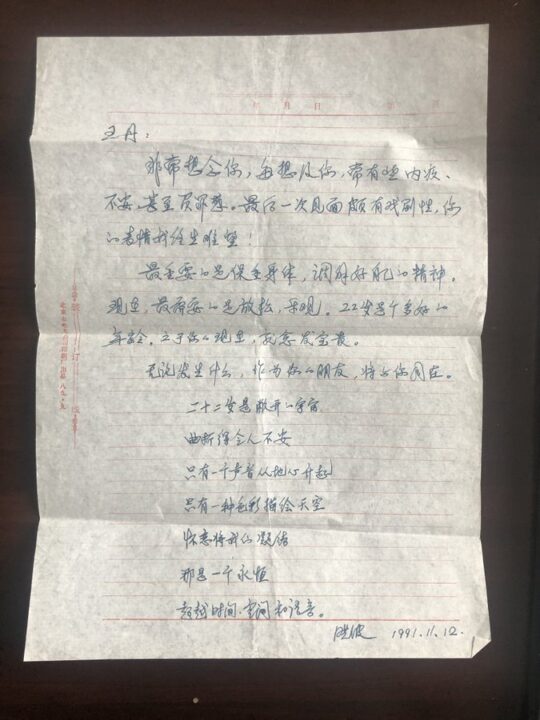 年 月 日 第 页
王丹：
非常想念你，每想及你，常有些内疚、
不安，甚至负罪感。最后一次见面颇有戏剧性，你
的表情我终生难望！
最重要的是保重身体，调养好自己的精神。
现在，最需要的是放松、乐观。22岁是个多好的
年龄。立于你的现在，
无论发生什么，作为你的朋友，将与你同在。
二十二岁是敞开的宇宙
曲折得令人不安
只有一个声音从地心升起
只有一种色彩描绘天空
怀恋将我们凝结
那是一个永恒
超越时间、空间和语言。
晓波 1991.11.12.
装订